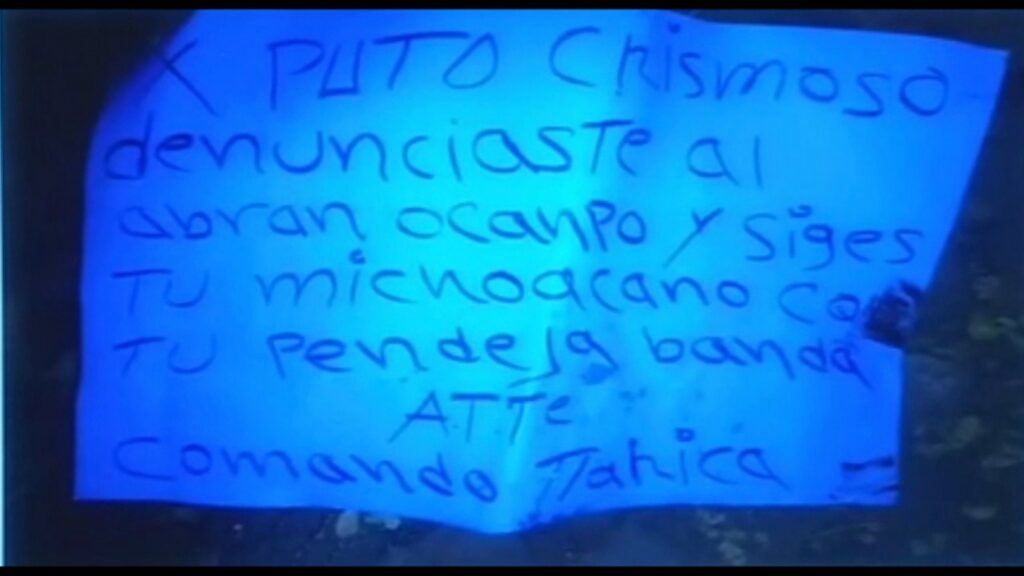 X PUTO Chismoso
denunciaste al
abran ocanpo y siges
Tu michoacano co
Tu pendeja banda
ATTe
Comando Tlahica